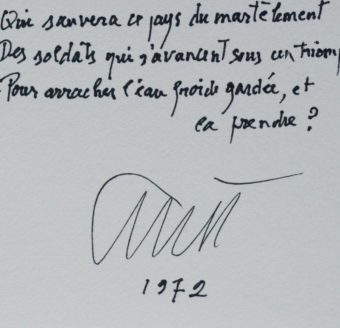 Qui sauvera ce pays du martèlement
Des soldats qui s'avancent sous un triomp
Pour arracher l'eau froide gardée, et
la prendre ?
1972